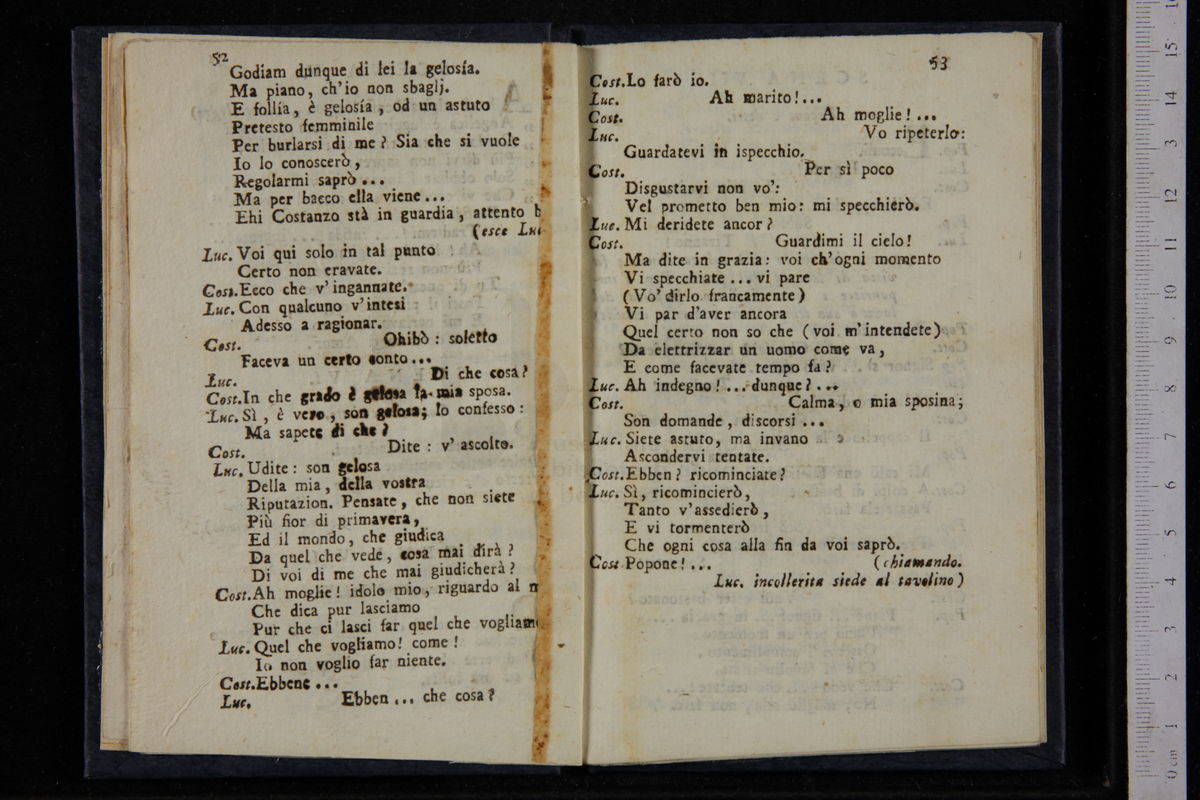 52
Godiam dunque di lei la gelosía.
Ma piano, ch'io non sbaglj.
E follía, è gelosía, od un astuto
Pretesto femminile
Per burlarsi di me? Sia che si vuole
Io lo conoscerò,
Regolarmi saprò...
Ma per bacco ella viene...
Ehi Costanzo stà in guardia, attento
(esce Luc
Luc. Voi qui solo in tal punto
Certo non eravate.
Cost. Ecco che v'ingannate.
Luc. Con qualcuno v'intesi
Adesso a ragionar.
Cost. Ohibò: soletto
Faceva un certo conto...
Luc. Di che cosa?
Cost. In che grado è gelosa la mia sposa.
Luc. Sì, è vero, son gelosa; lo confesso:
Ma sapete di che?
Cost. Dite: v'ascolto.
Luc. Udite: son gelosa
Della mia, della vostra
Riputazion. Pensate, che non siete
Più fior di primavera,
Ed il mondo, che giudica
Da quel che vede, cosa mai dirà?
Di voi di me che mai giudicherà?
Cost. Ah moglie! idolo mio, riguardo al
Che dica pur lasciamo
Pur che ci lasci far quel che vogliamo
Luc. Quel che vogliamo! come!
Io non voglio far niente.
Cost. Ebbene...
Luc. Ebben... che cosa?
53
Cost. Lo farò io.
Luc. Ah marito!...
Cost. Ah moglie!...
Luc. Vo ripeterlo:
Guardatevi in ispecchio.
Cost. Per sì poco
Disgustarvi non vo':
Vel prometto ben mio: mi specchierò.
Luc. Mi deridete ancor?
Cost. Guardimi il cielo!
Ma dite in grazia: voi ch'ogni momento
Vi specchiate... vi pare
(Vo' dirlo francamente)
Vi par d'aver ancora
Quel certo non so che (voi m'intendete)
Da elettrizzar un uomo come va,
E come facevate tempo fa?
Luc. Ah indegno!... dunque?...
Cost. Calma, o mia sposina;
Son domande, discorsi...
Luc. Siete astuto, ma invano
Ascondervi tentate.
Cost. Ebben? ricominciate?
Luc. Sì, ricomincierò,
Tanto v'assedierò,
E vi tormenterò
Che ogni cosa alla fin da voi saprò.
Cost Popone!... (chiamando.
Luc. incollerita siede al tavolino)